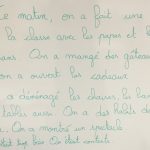 Ce matin, on a fait une
la classe avec les papas et l
mans. On a mangé des gâteau
on a ouvert les cadeaux
a déménagé les chaises, les ban
tables aussi. On a des habits de
On a montré un spectacle
était trop bien. On était contents